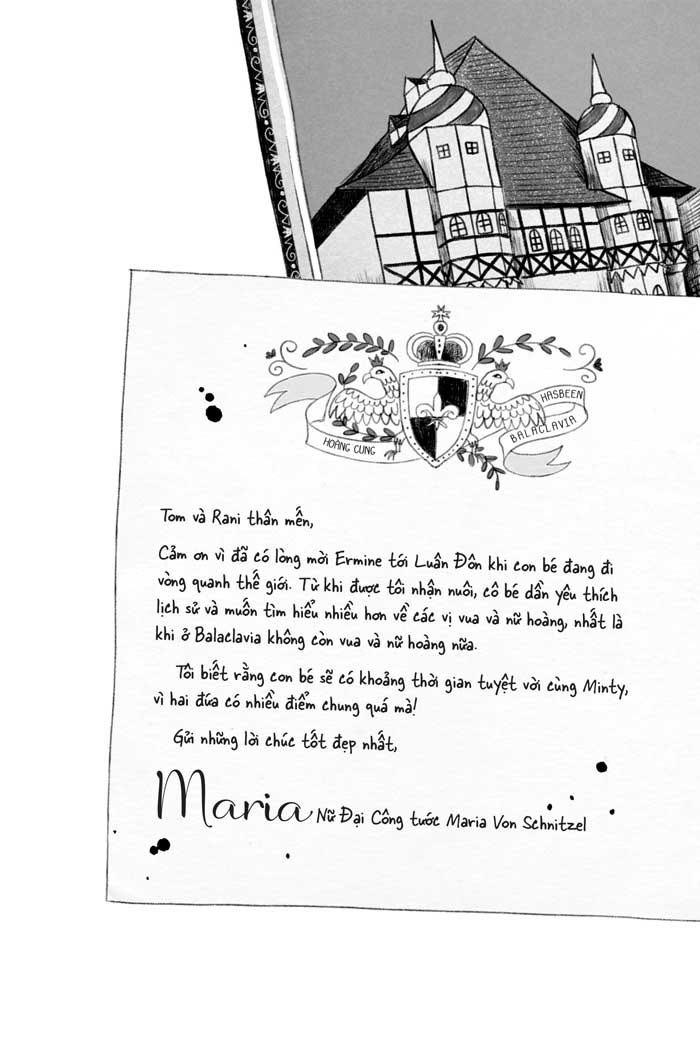 HOÀNG CUNG
HASBEEN
BALACLAVIA
Tom và Rani thân mến,
Cảm ơn vì đã có lòng mời Ermine tới Luân Đôn khi con bé đang đi
vòng quanh thế giới. Từ khi được tôi nhận nuôi, cô bé dần yêu thích
lịch sử và muốn tìm hiểu nhiều hơn về các vị vua và nữ hoàng, nhất là
khi ở Balaclavia không còn vua và nữ hoàng nữa.
Tôi biết rằng con bé sẽ có khoảng thời gian tuyệt vời cùng Minty,
vì hai đứa có nhiều điểm chung quá mà!
Gửi những lời chúc tốt đẹp nhất,
Maria Nữ Đại Công tước Maria Von Schnitzel